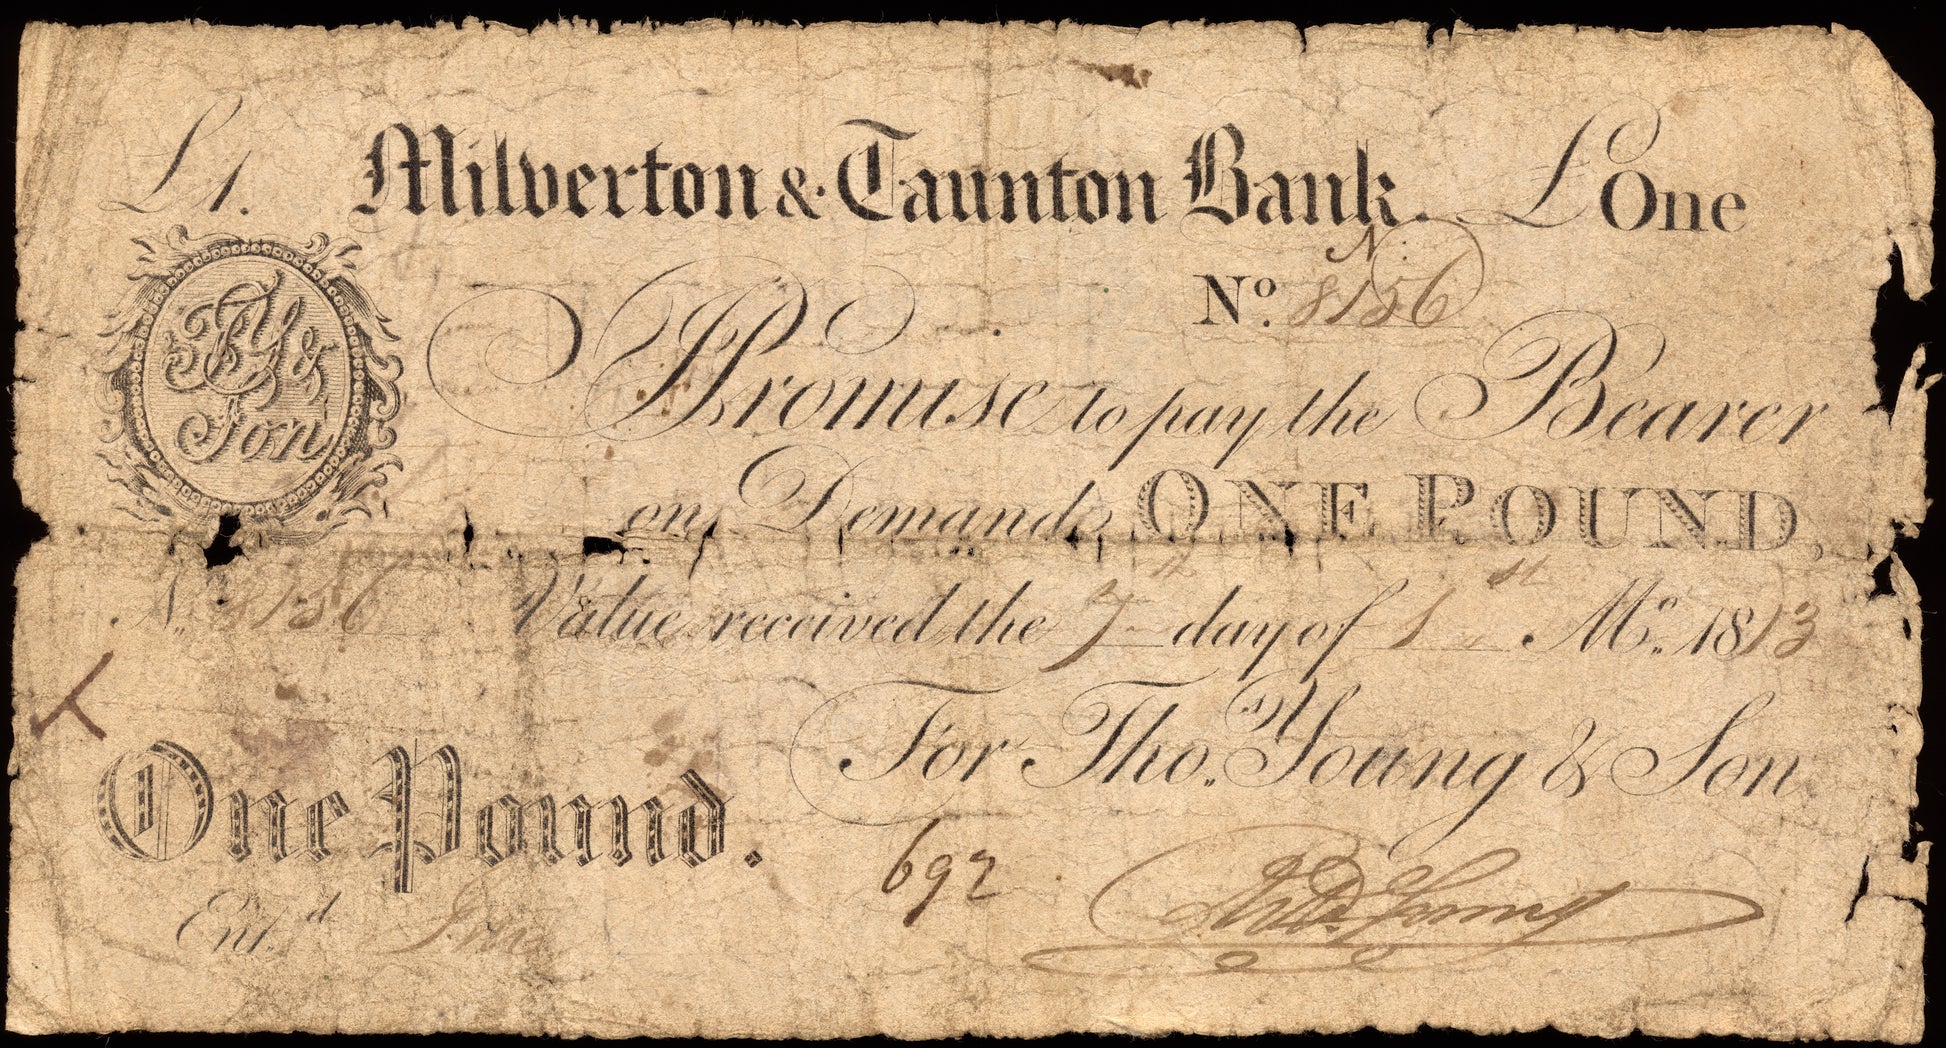 £1. Milverton & Taunton Bank. £One
N.
No. 8156
I Promise to pay the Bearer
on Demand, ONE POUND,
No. 8156 Value received the 7th day of 1st Mo. 1813
For Thos. Young & Son
TY &
Son
One Pound.
692
Entd.